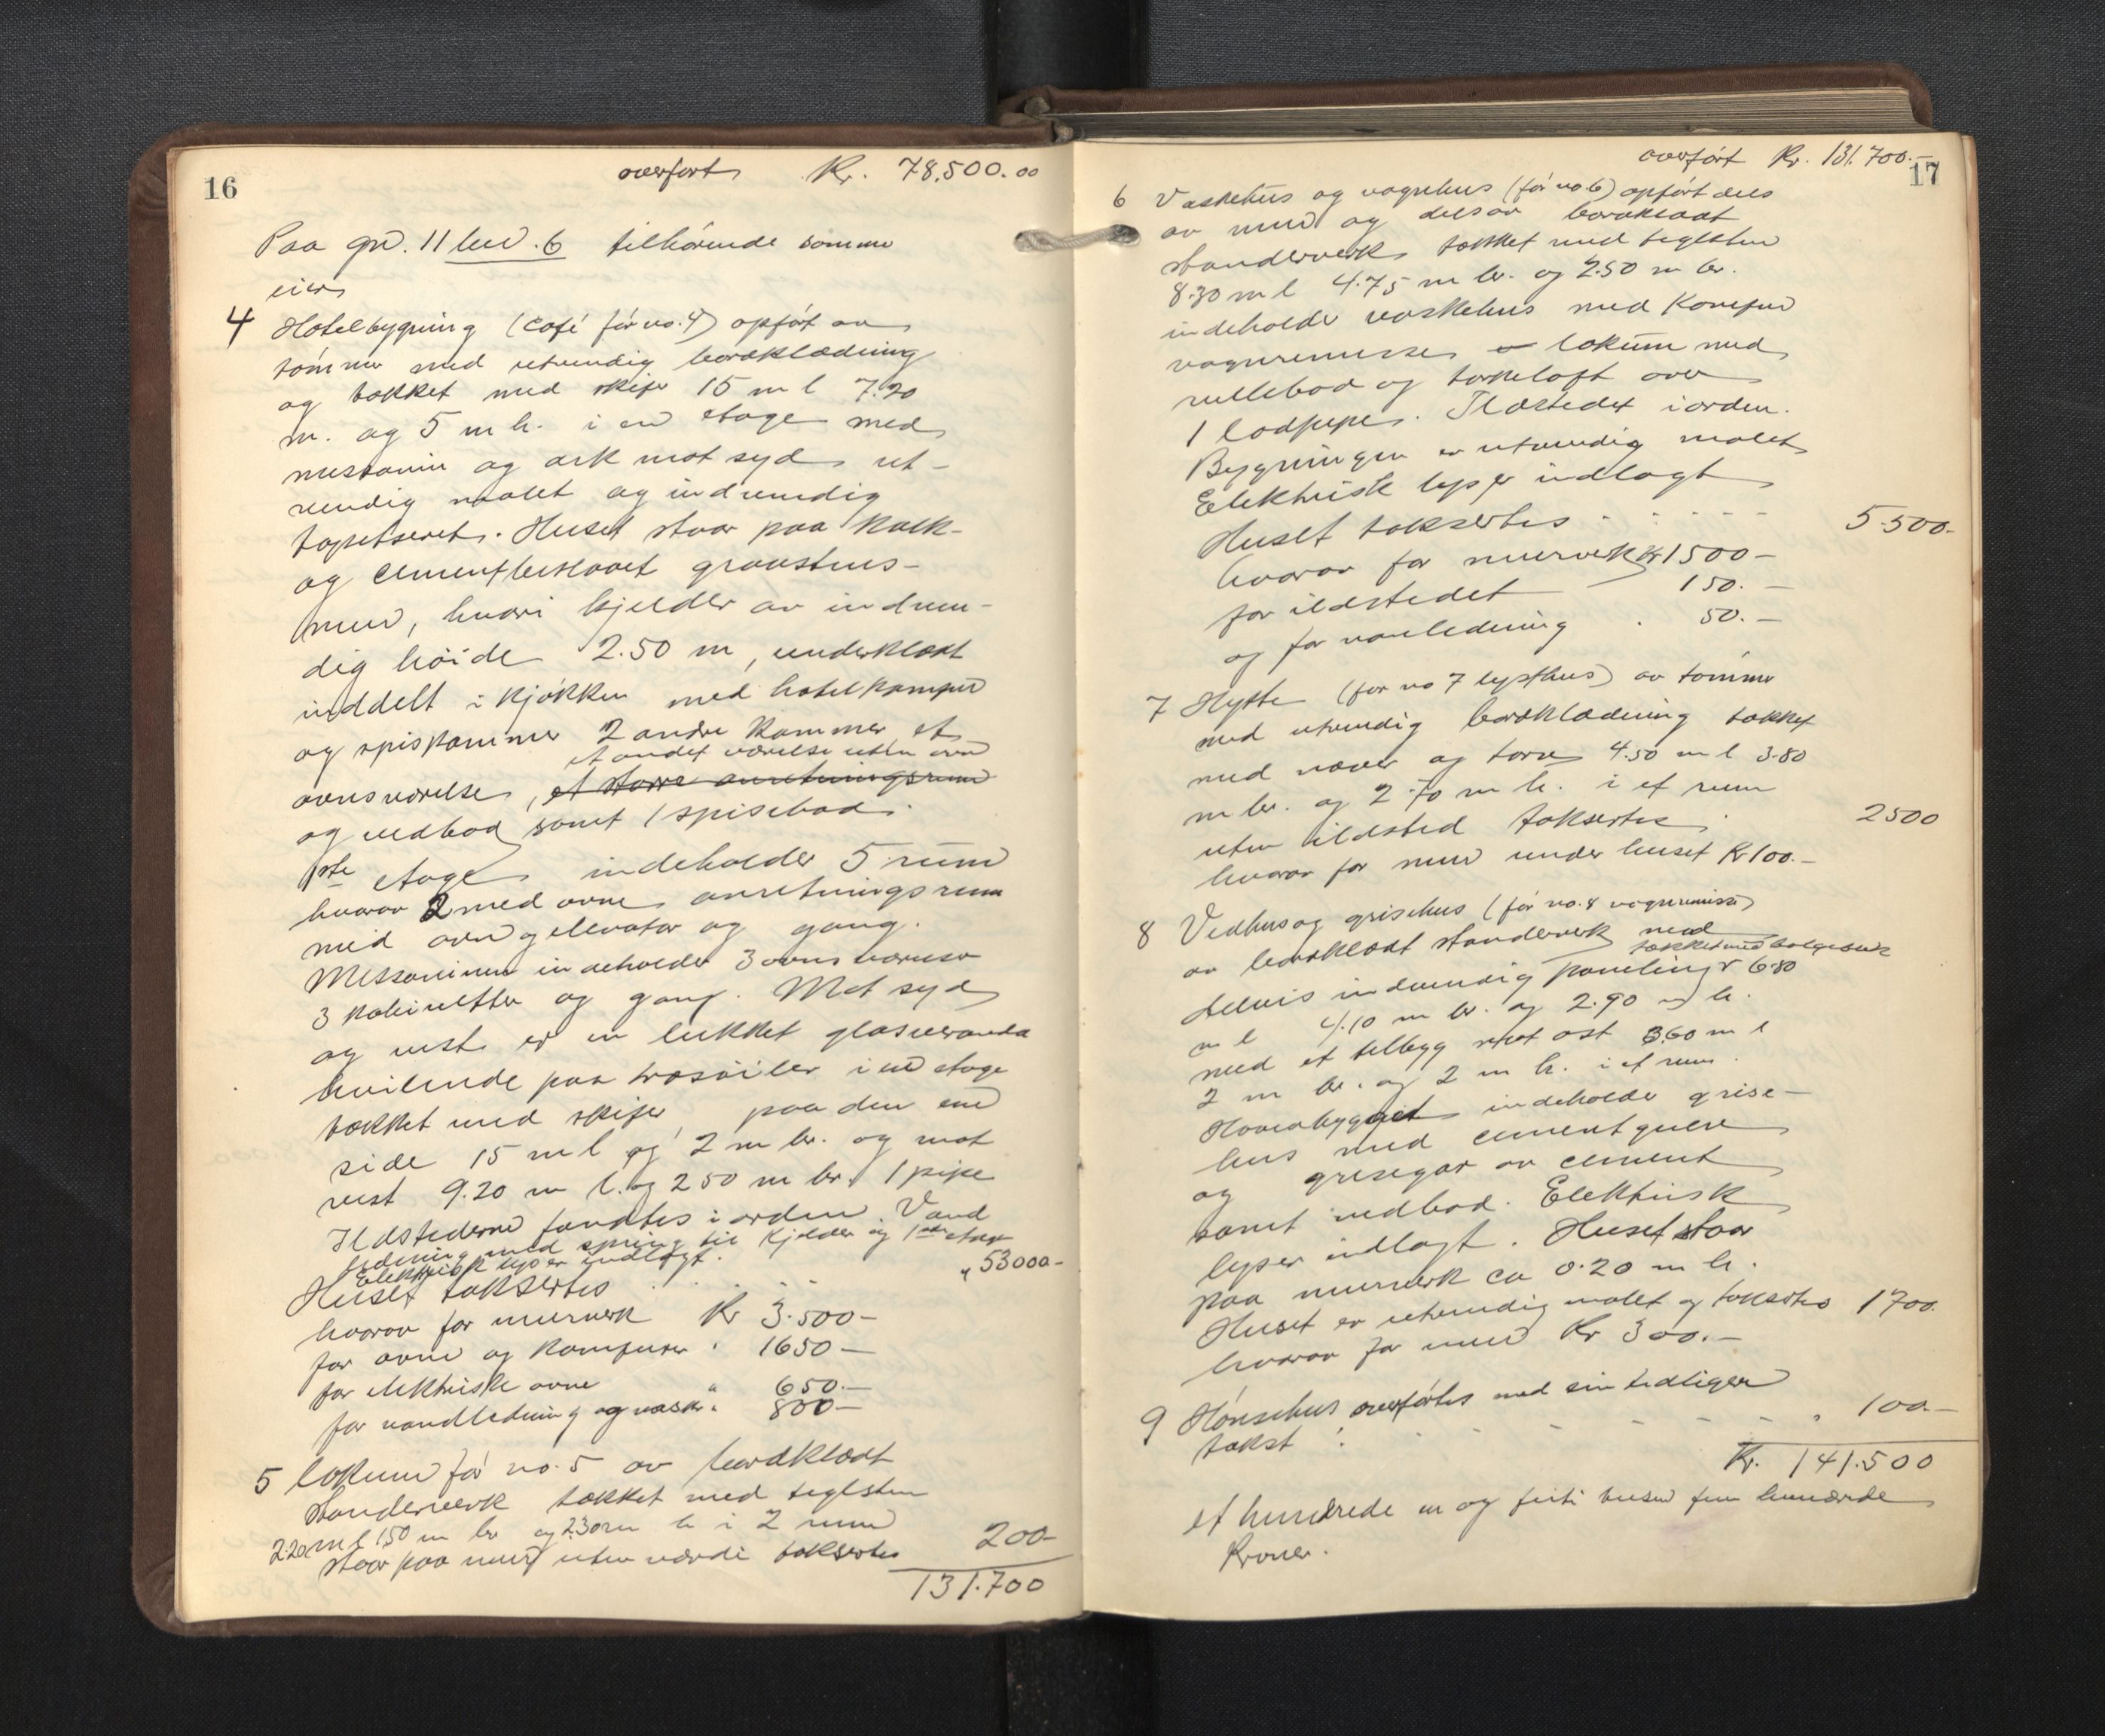 16
overført Kr. 78,500.00
Paa gn. 11 bnr. 6 tilhörende samme
eier
4 Hotelbygning (café för no. 4) opfört av
tömmer med utvendig bordklædning
og tækket med skifer 15 m l 7.20
m. og 5 m h. i en etage med
messanin og ark mot syd ut-
vendig malet og indvendig
tapetseret. Huset staar paa kalk-
og cementberappet graastens-
mur, hvori kjelder av indven-
dig höide 2.50 m, underklædt
inddelt i kjökken med hotelkomfur
og spiskammer 2 andre kammer et
et andet værelse uten ovn
ovnsværelse, et större anretningsrum
og vedbod samt 1 spisebod.
1ste etage indeholder 5 rum
hvorav 2 med ovne anretningsrum
med ovn og elevator og gang.
Messaninen indeholder 3 ovnsværelser
3 kabinetter og gang. Mot syd
og vest er en lukket glasveranda
hvilende paa træsöiler i en etage
tækket med skifer, paa den ene
side 15 m l og 2 m br. og mot
vest 9.20 m l. og 2 50 m br. 1 pipe
Ildstederne fandtes i orden. Vand
ledning med spring til kjelder og 1ste etage
Elektrisk lys er indlagt.
Huset taksertes . . . . " 53000-
hvorav for murverk Kr 3.500-
for ovne og komfurer " 1650-
for elektriske ovne " 650.-
for vandledning og vask " 800-
5 lokum för no. 5 av bordklædt
standerverk tækket med teglsten
2.20 m l 1,50 m br og 2.30 m h i 2 rum
staar paa mur uten værdi taksertes 200-
131.700
overfört Kr. 131.700.-
17
6 Vaskehus og vognhus (för no. 6) opfört dels
av mur og dels av bordklædt
standerverk tækket med teglsten
8.30 m l 4.75 m br. og 2.50 m br.
indeholder vaskehus med komfur
vognremisse lokum med
rullebod og törkeloft over
1 lodpipe. Ildstedet i orden.
Bygningen er utvendig malet
Elektrisk lys er indlagt
Huset taksertes . . . . . 5.500-
hvorav for murverk Kr 1500-
for ildstedet 150.-
og for vandledning . 50.-
7 Hytte (för no 7 lysthus) av tömmer
med utvendig bordklædning tækket
med næver og torv 4.50 m l 3.80
m br. og 2.70 m h. i et rum
uten ildsted taksertes . 2500
hvorav for mur under huset Kr 100.-
8 Vedhus og grisehus (för no. 8 vognremisse)
av bordklædt standerverk med
tækket med bølgeblik
delvis indvendig paneling 6.80
m l 4.10 m br. og 2.90 m h.
med et tilbygg mot öst 3.60 m l
2 m br. og 2 m h. i et rum.
Hovedbygget indeholder grise-
hus med cementgulv
og grisegar av cement
samt vedbod. Elektrisk
lys er indlagt. Huset staar
paa murverk ca 0.20 m h.
Huset er utvendig malet og taksertes 1700.
hvorav for mur Kr 300.-
9 Hönsehus overförtes med sin tidligere
takst . . - - - - - " 100.-
Kr. 141.500
et hundrede en og firti tusen fem hundrede
Kroner.